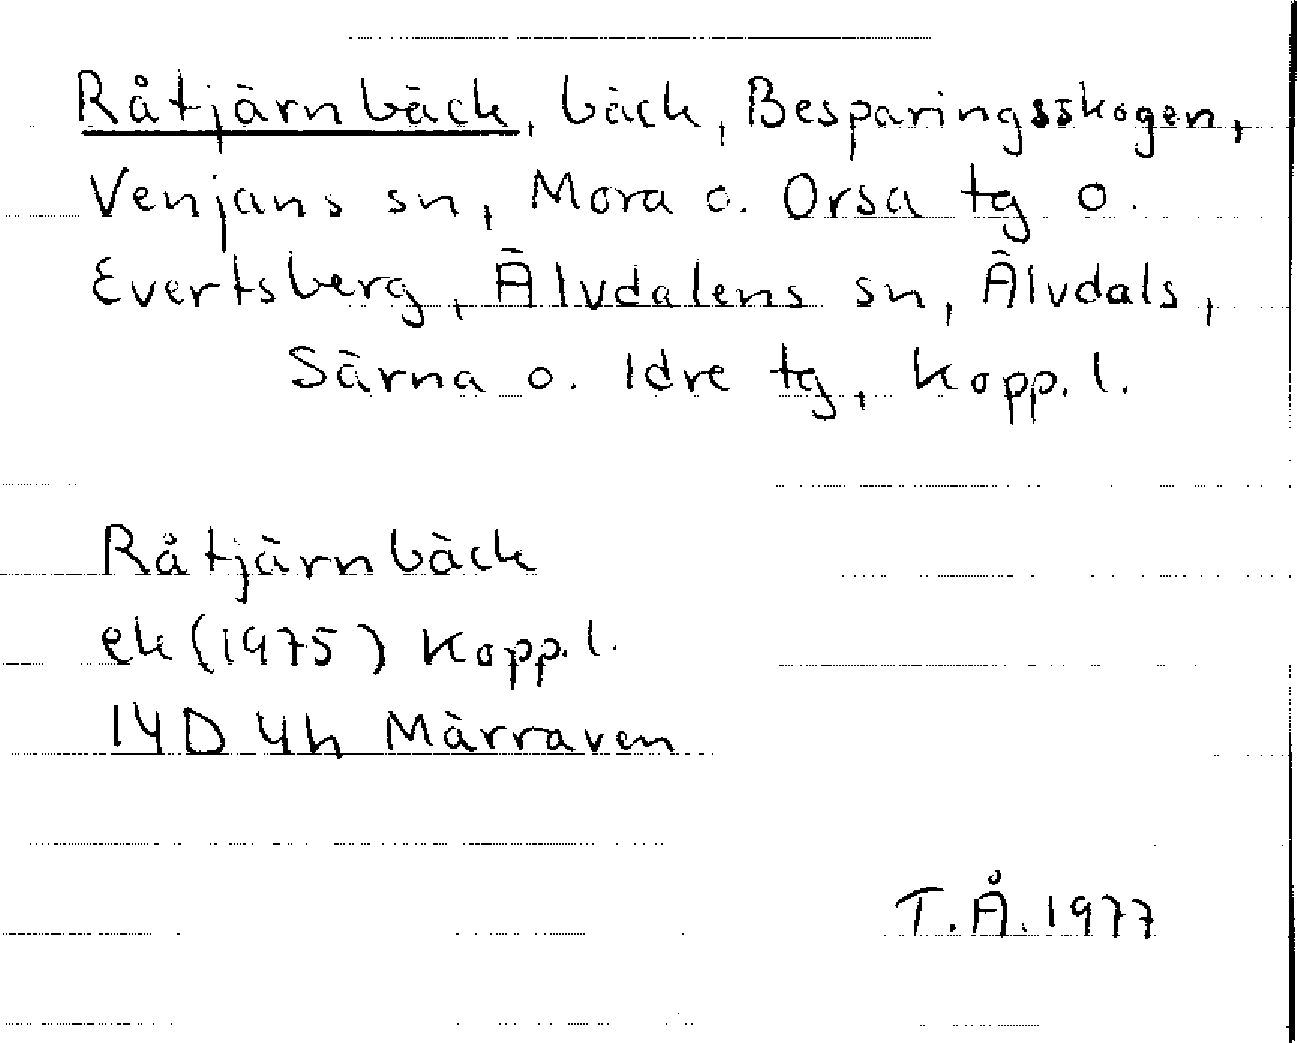 Råtjärnbäck, bäck, Besparingsskogen,
Venjans sn, Mora o. Orsa tg o.
Evertsberg, Älvdalens sn, Älvdals,
Särna o. Idre tg, Kopp. l.
Råtjärnbäck
ek (1975) Kopp. l.
14D 4h Märraven
T.Å. 1977